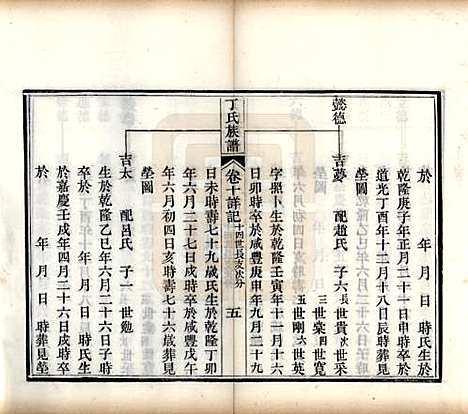 於　年　月　日　時氏生於
乾隆庚子年正月二十一日申時卒於
道光丁酉年十二月十八日辰時葬見
塋圖
懿德
吉夢　配趙氏　子六長世貴次世采
三世棠四世寬
五世剛六世英
字照卜生於乾隆壬寅年十一月十六
日卯時卒於咸豐庚申年九月二十九
丁氏族譜
卷十詳記
十四世長支次分
五
日未時壽七十九歲氏生於乾隆丁卯
年六月二十七日戌時卒於咸豐戊午
年六月初四日亥時壽七十六歲葬見
塋圖
吉太　配呂氏　子一世勉
生於乾隆乙巳年六月二十六日子時
卒於　年　月　日　時氏生
於嘉慶壬戌年四月二十六日戌時卒
於　年　月　日　時葬見塋